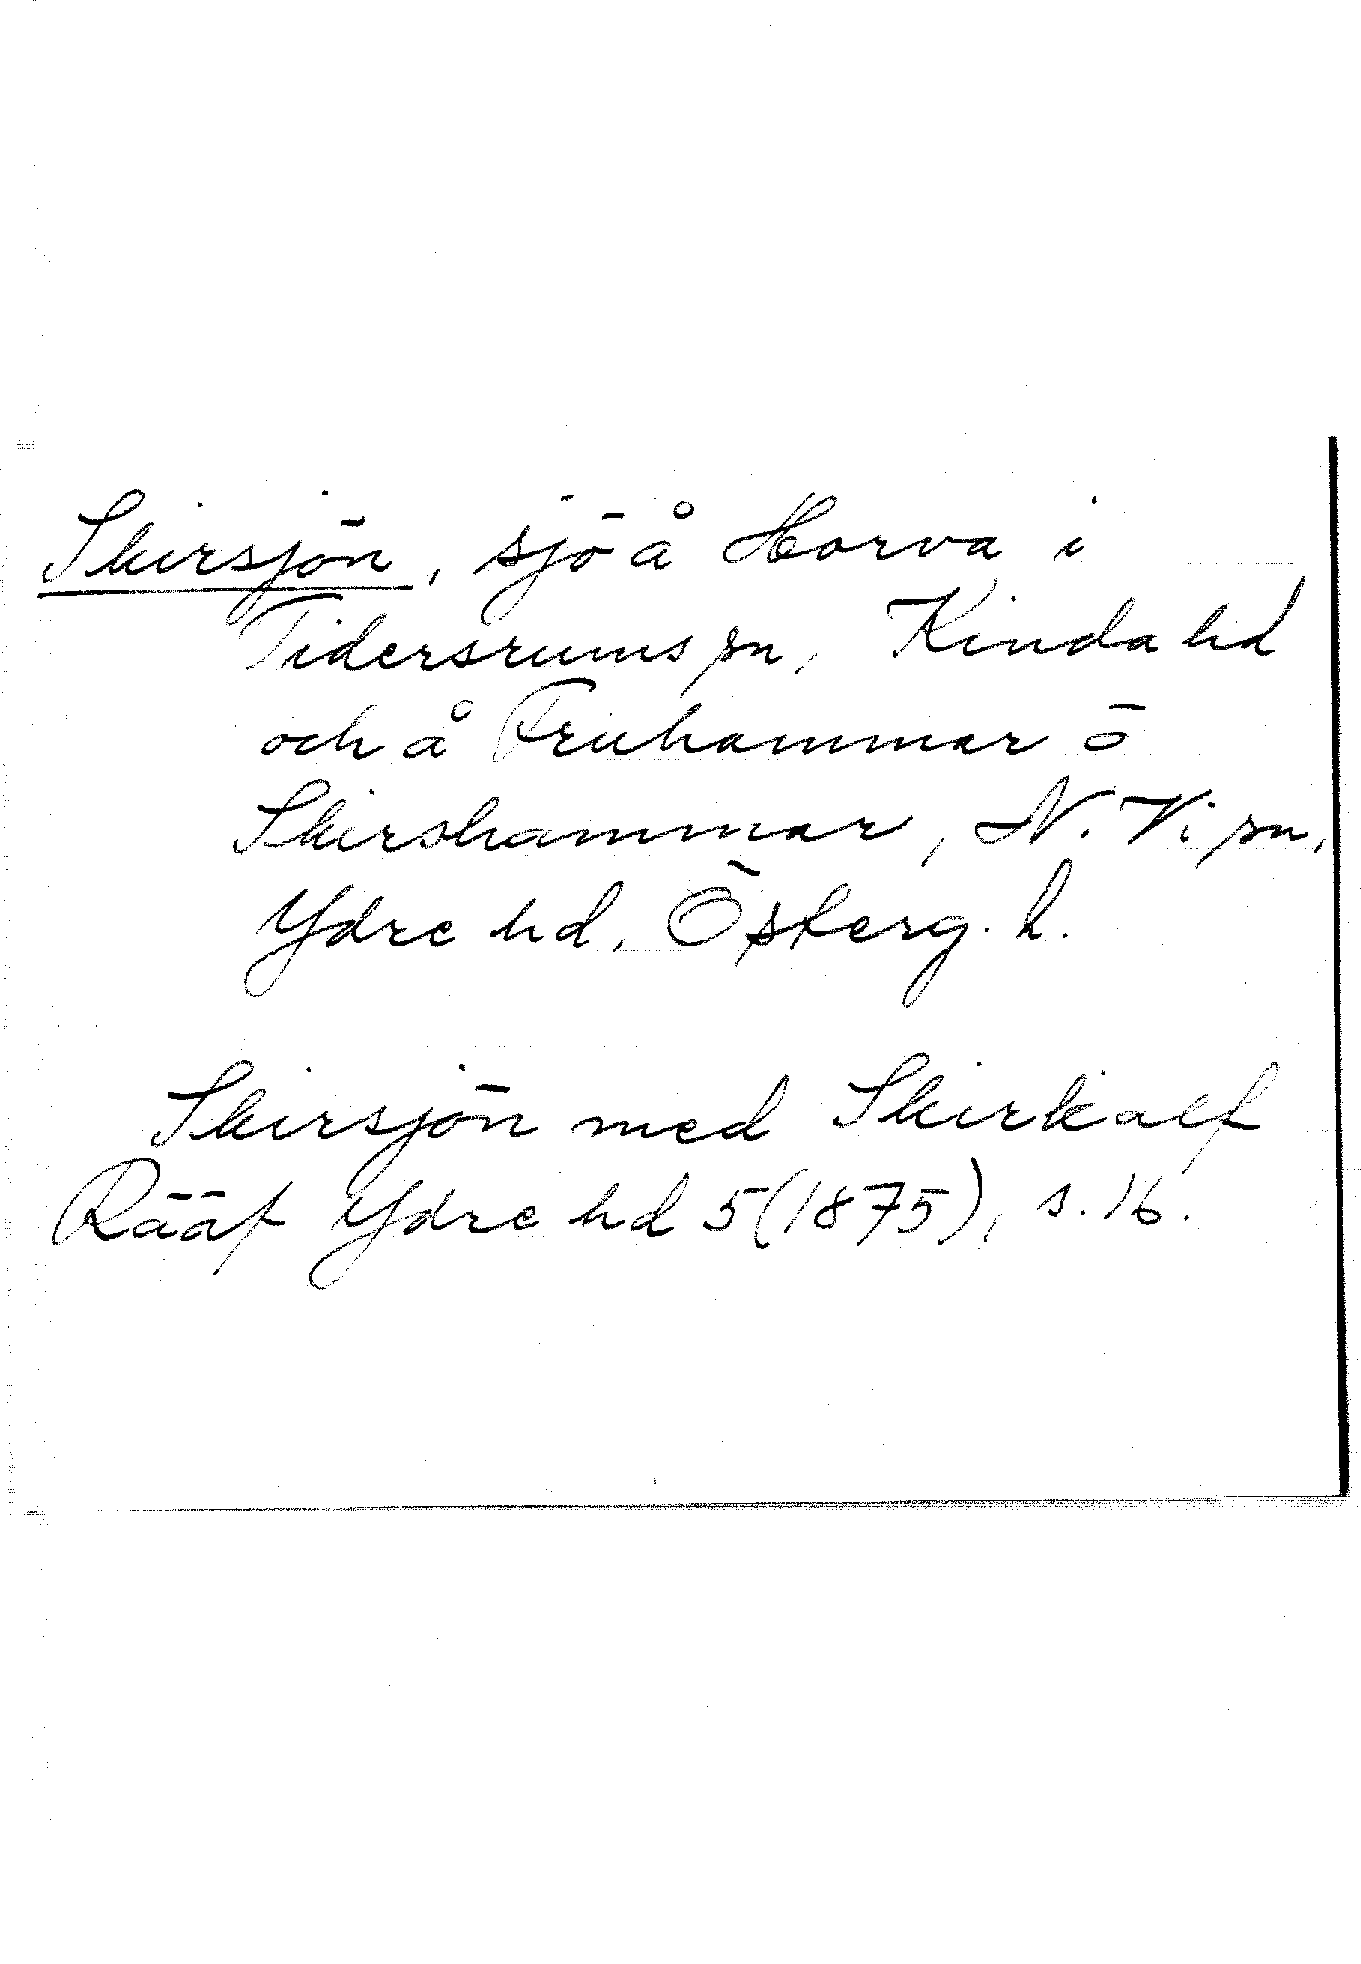 Skirsjön, sjö å Horva i
Tidersrums sn, Kinda hd
och å Fruhammar o
Skirshammar, N. Vi sn,
Ydre hd. Österg. l.
Skirsjön med Skirkalf
Rääf Ydre hd 5 (1875), s. 16.